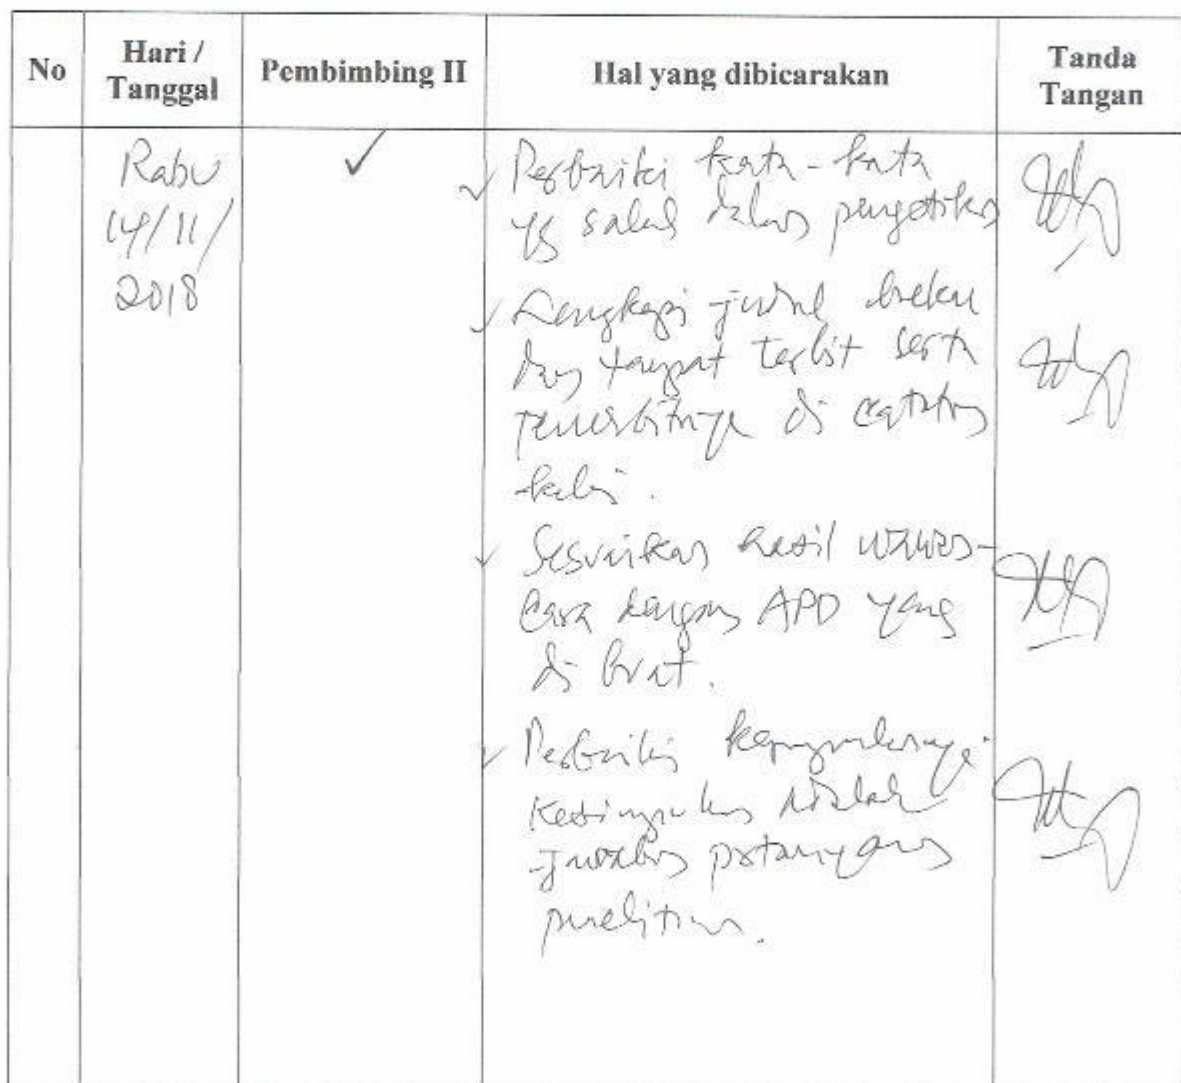 No
Hari /
Tanggal
Pembimbing II
Hal yang dibicarakan
Tanda
Tangan
Rabu
14/11/
2018
✓
✓ Perbaiki kata-kata
yg salah dalam pengetikan
✓ Lengkapi judul buku
dan tempat terbit serta
penerbitnya di catatan
kaki.
✓ Sesuaikan hasil wawan-
cara dengan APD yang
di buat.
✓ Perbaiki
Kesimpulan adalah
jawaban pertanyaan
penelitian.